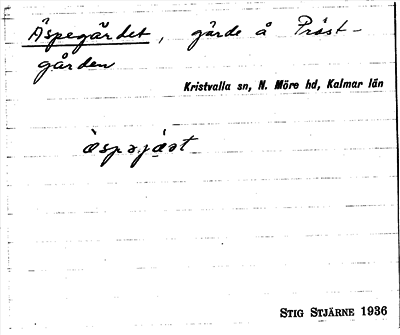 Äspegärdet, gärde å Präst-
gården
Kristvalla sn, N. Möre hd, Kalmar län
STIG STJÄRNE 1936